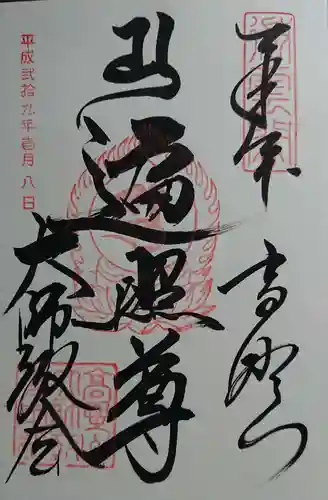 奉拝
高野山
遍照尊
大師教会
平成弐拾九年壱月八日